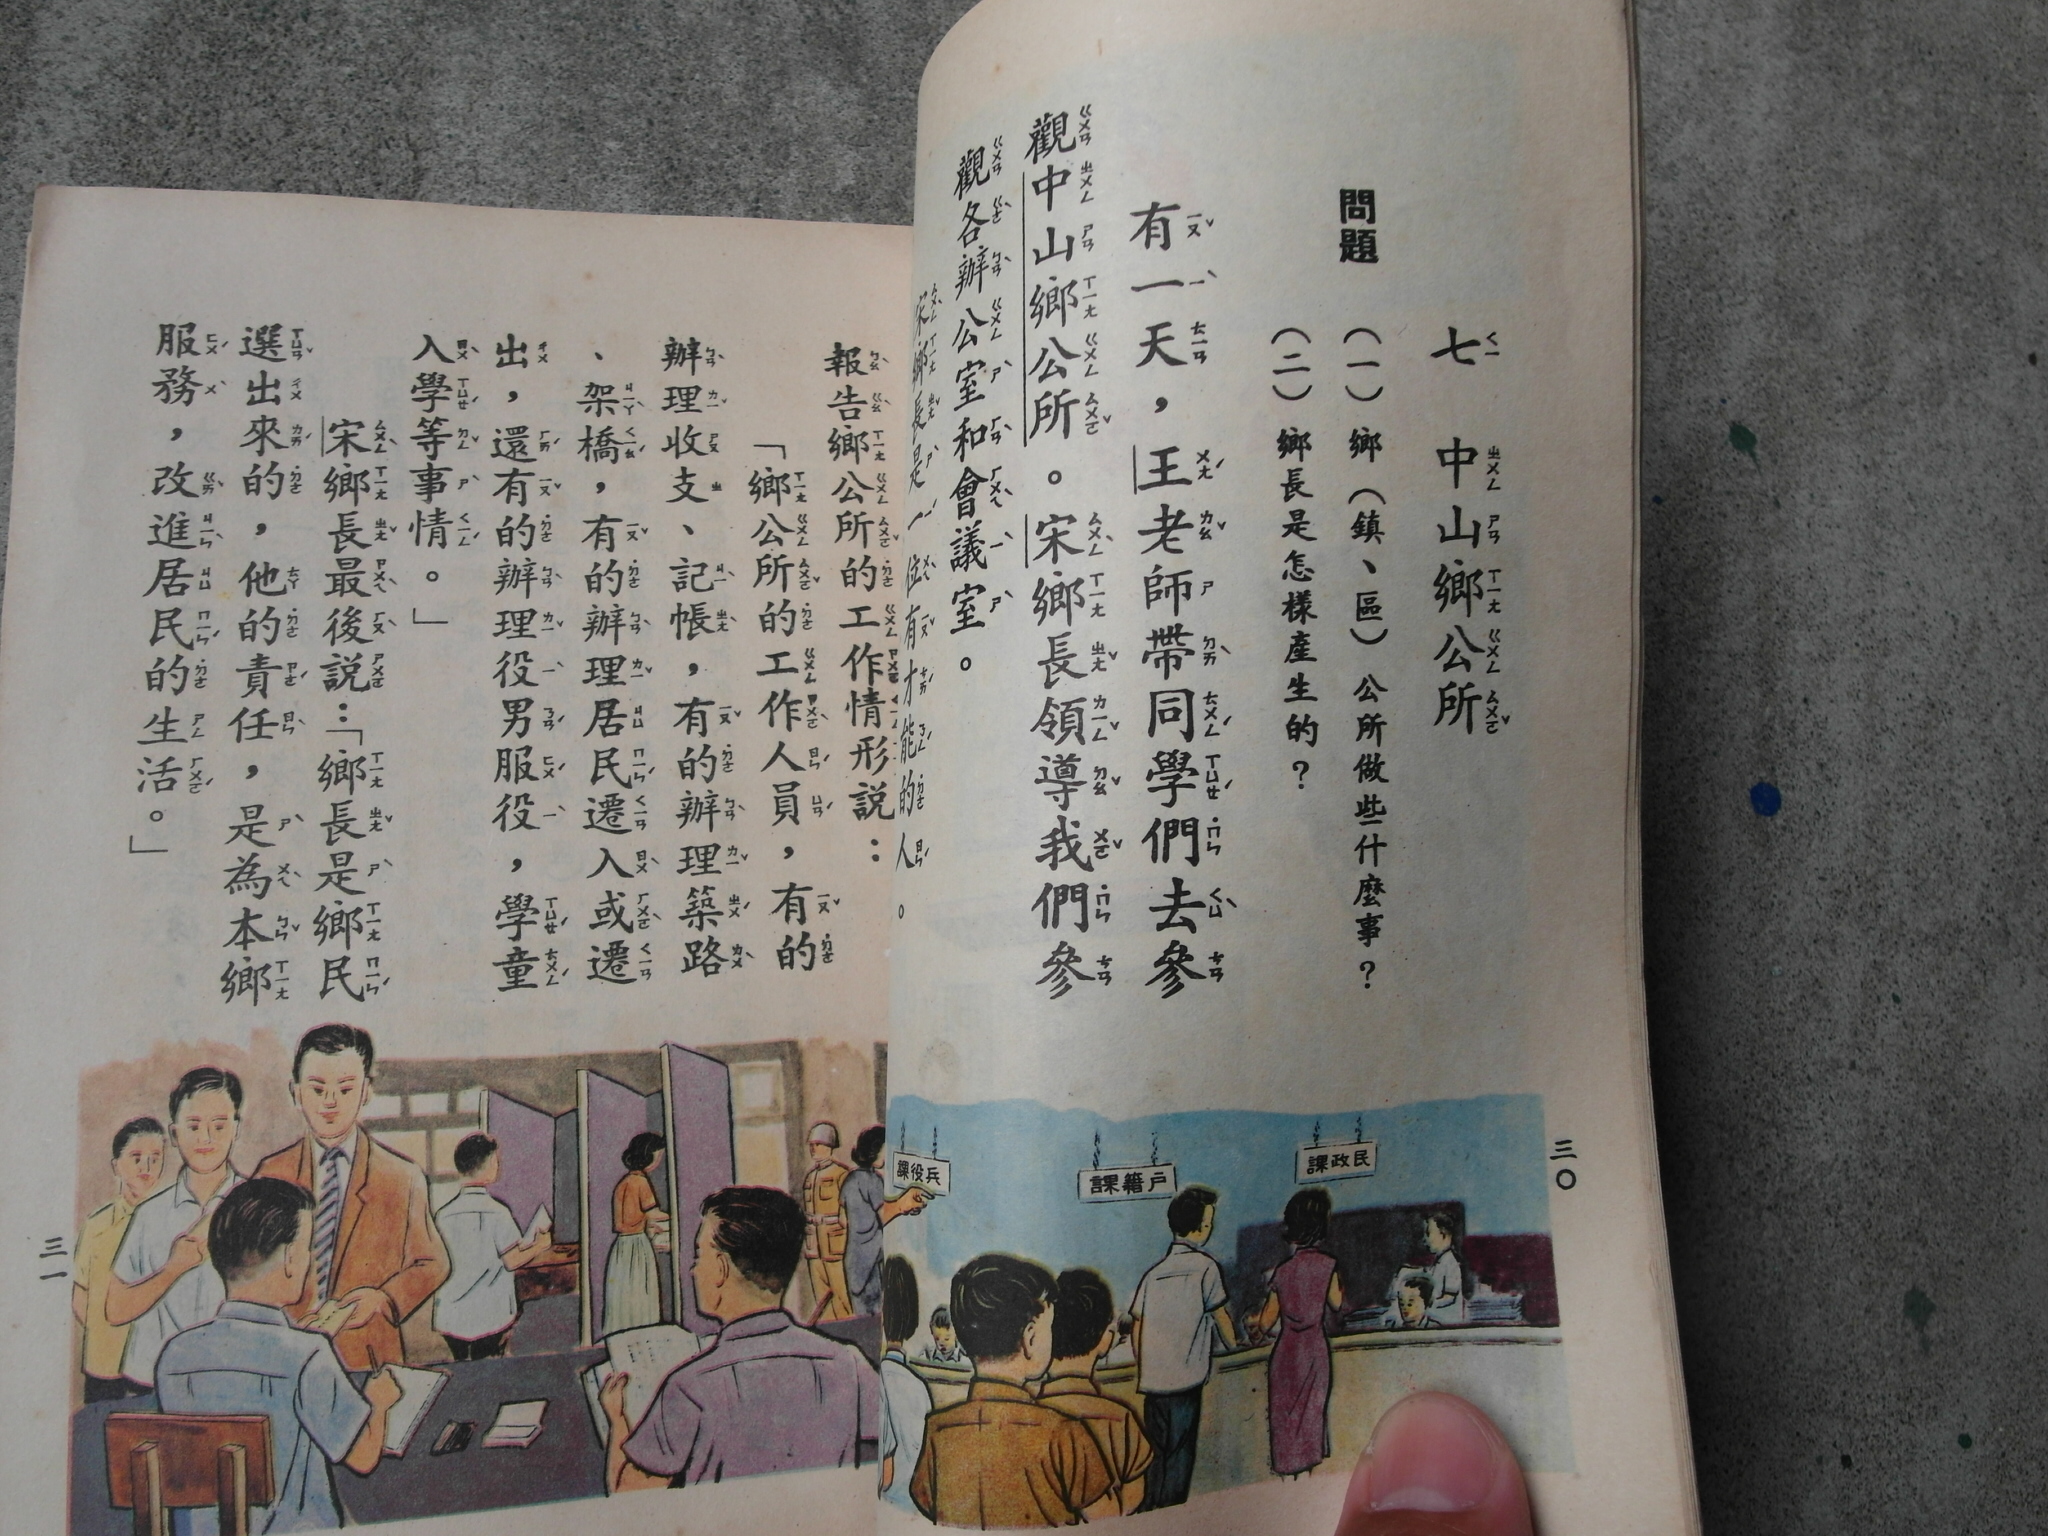 七　中山鄉公所
問題
（一）鄉（鎮、區）公所做些什麼事？
（二）鄉長是怎樣產生的？
有一天，王老師帶同學們去參
觀中山鄉公所。宋鄉長領導我們參
觀各辦公室和會議室。
宋鄉長是一位有才能的人。
民政課
戶籍課
兵役課
三〇
報告鄉公所的工作情形說：
「鄉公所的工作人員，有的
辦理收支、記帳，有的辦理築路
、架橋，有的辦理居民遷入或遷
出，還有的辦理役男服役，學童
入學等事情。」
宋鄉長最後說：「鄉長是鄉民
選出來的，他的責任，是為本鄉
服務，改進居民的生活。」
三一